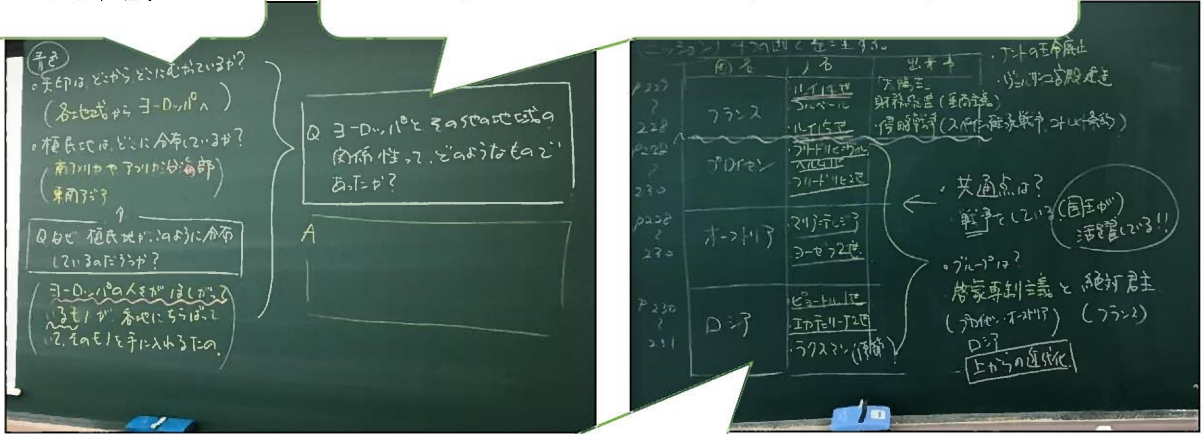 青色
・矢印は、どこから、どこにむかっているか?
(各地域から ヨーロッパへ)
・植民地は、どこに分布しているか?
南アメリカやアフリカ沿海部
東南アジア
↑
Qなぜ 植民地が、このように分布
しているのだろうか?
ヨーロッパの人々がほしがって
いるものが、各地にちらばって
て、そのものを手に入れるため。
Q ヨーロッパとその他の地域の
関係性って、どのようなもので
あったか?
A
国名
人名
出来事
・ナントの王命廃止
・ヴェルサイユ宮殿建造
P227
228
フランス
・ルイ14世
・コルベール
・ルイ15世
太陽王
財務総監(重商主義)
・侵略戦争(スペイン継承戦争
P228
230
プロイセン
フリードリヒ2世
P228
230
オーストリア
・マリア=テレジア
・ヨーゼフ2世
P230
231
ロシア
・ピョートル1世
・エカチェリーナ2世
・ラクスマン
←
・共通点は?
戦争をしている(国王が)
活躍している!!
・グループは?
啓蒙専制主義と絶対君主
(プロイセン・オーストリア)
(フランス)
ロシア
上からの近代化